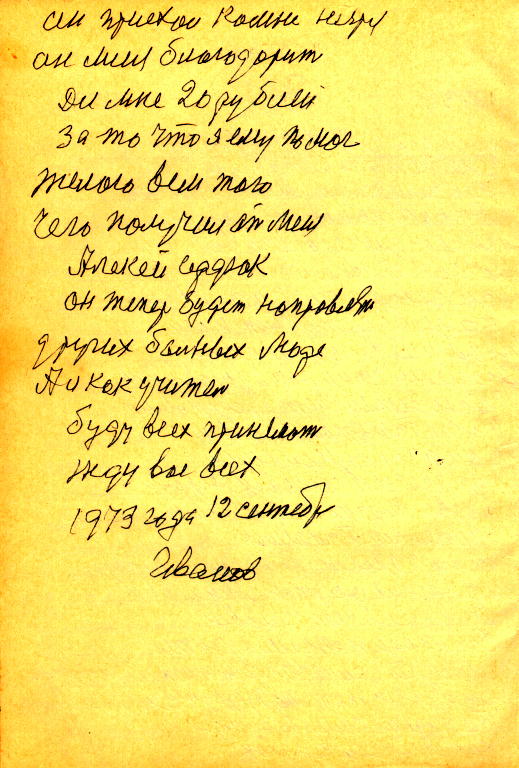 он приехал комне
он меня благодорит
Дал мне 20 рублей
За то что я ему помог
Желаю всем того
чего получил от меня
Алексей
он тепер будет направлят
других больных люде
А я как учител
буду всех принимат
жду вас всех
1973 года 12 сентебр
Иванов